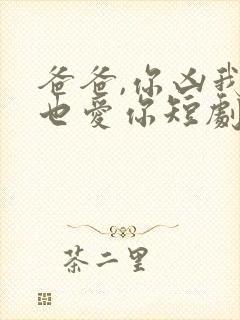 爸爸,你凶我
也愛你短劇
茶二里